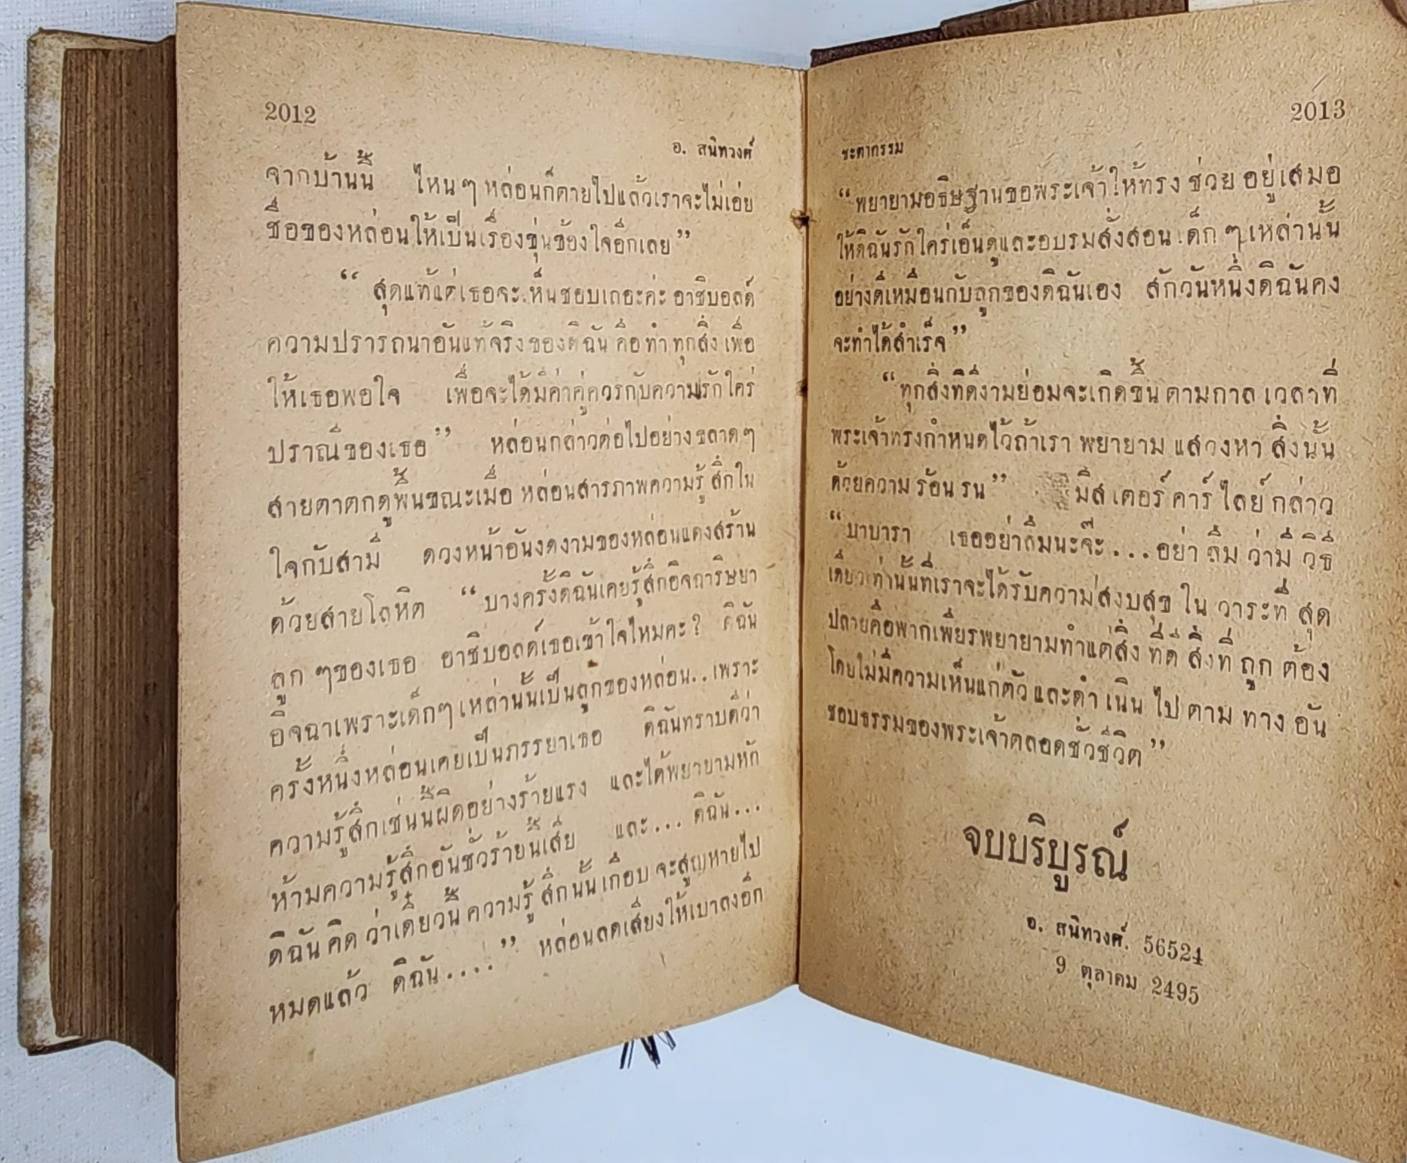 2012
อ. สนิทวงศ์
จากบ้านนี้ ไหนๆ หล่อนก็ตายไปแล้วเราจะไม่เอ่ย
ชื่อของหล่อนให้เป็นเรื่องขุ่นข้องใจอีกเลย”
“ สุดแท้แต่เธอจะเห็นชอบเถอะค่ะ อาชิบอลด์
ความปรารถนาอันแท้จริงของดิฉัน คือ ทำ ทุกสิ่ง เพื่อ
ให้เธอพอใจ เพื่อจะได้มีค่าคู่ควรกับความรักใคร่
ปราณีของเธอ” หล่อนกล่าวต่อไปอย่างขลาดๆ
สายตาตกดูพื้นขณะเมื่อ หล่อนสารภาพความรู้ สึกใน
ใจกับสามี ดวงหน้าอันงดงามของหล่อนแดงสร้าน
ด้วยสายโลหิต “บางครั้งดิฉันเคยรู้สึกอิจฉาริษยา
ลูก ๆของเธอ อาชิบอลด์เธอเข้าใจไหมคะ? ดิฉัน
อิจฉาเพราะเด็กๆ เหล่านั้นเป็นลูกของหล่อน..เพราะ
ครั้งหนึ่งหล่อนเคยเป็นภรรยาเธอ ดิฉันทราบดีว่า
ความรู้สึกเช่นนี้ผิดอย่างร้ายแรง และได้พยายามหัก
ห้ามความรู้สึกอันชั่วร้ายนี้เสีย และ... ดิฉัน...
ดิฉันคิด ว่าเดี๋ยวนี้ ความรู้ สึกนั้น เกือบ จะสูญหายไป
หมดแล้ว ดิฉัน....” หล่อนลดเสียงให้เบาลงอีก
2013
ชะตากรรม
“พยายามอธิษฐานขอพระเจ้าให้ทรง ช่วย อยู่เสมอ
ให้ดิฉันรักใคร่เอ็นดูและอบรมสั่งสอน เด็ก ๆ เหล่านั้น
อย่างดีเหมือนกับลูกของดิฉันเอง สักวันหนึ่งดิฉันคง
จะทำได้สำเร็จ”
“ทุกสิ่งที่ดีงามย่อมจะเกิดขึ้น ตามกาล เวลาที่
พระเจ้าทรงกำหนดไว้ถ้าเรา พยายาม แสวงหา สิ่งนั้น
ด้วยความ ร้อน รน” มิส เตอร์ คาร์ ไลย์ กล่าว
“บาบารา เธออย่าลืมนะจ๊ะ...อย่า ลืม ว่ามี วิธี
เดียวเท่านั้นที่เราจะได้รับความสงบสุข ใน วาระที่ สุด
ปลายคือพากเพียรพยายามทำแต่สิ่ง ที่ดี สิ่งที่ ถูก ต้อง
โดยไม่มีความเห็นแก่ตัว และดำ เนิน ไป ตาม ทาง อัน
ชอบธรรมของพระเจ้าตลอดชั่วชีวิต”
จบบริบูรณ์
อ. สนิทวงศ์. 56524
9 ตุลาคม 2495